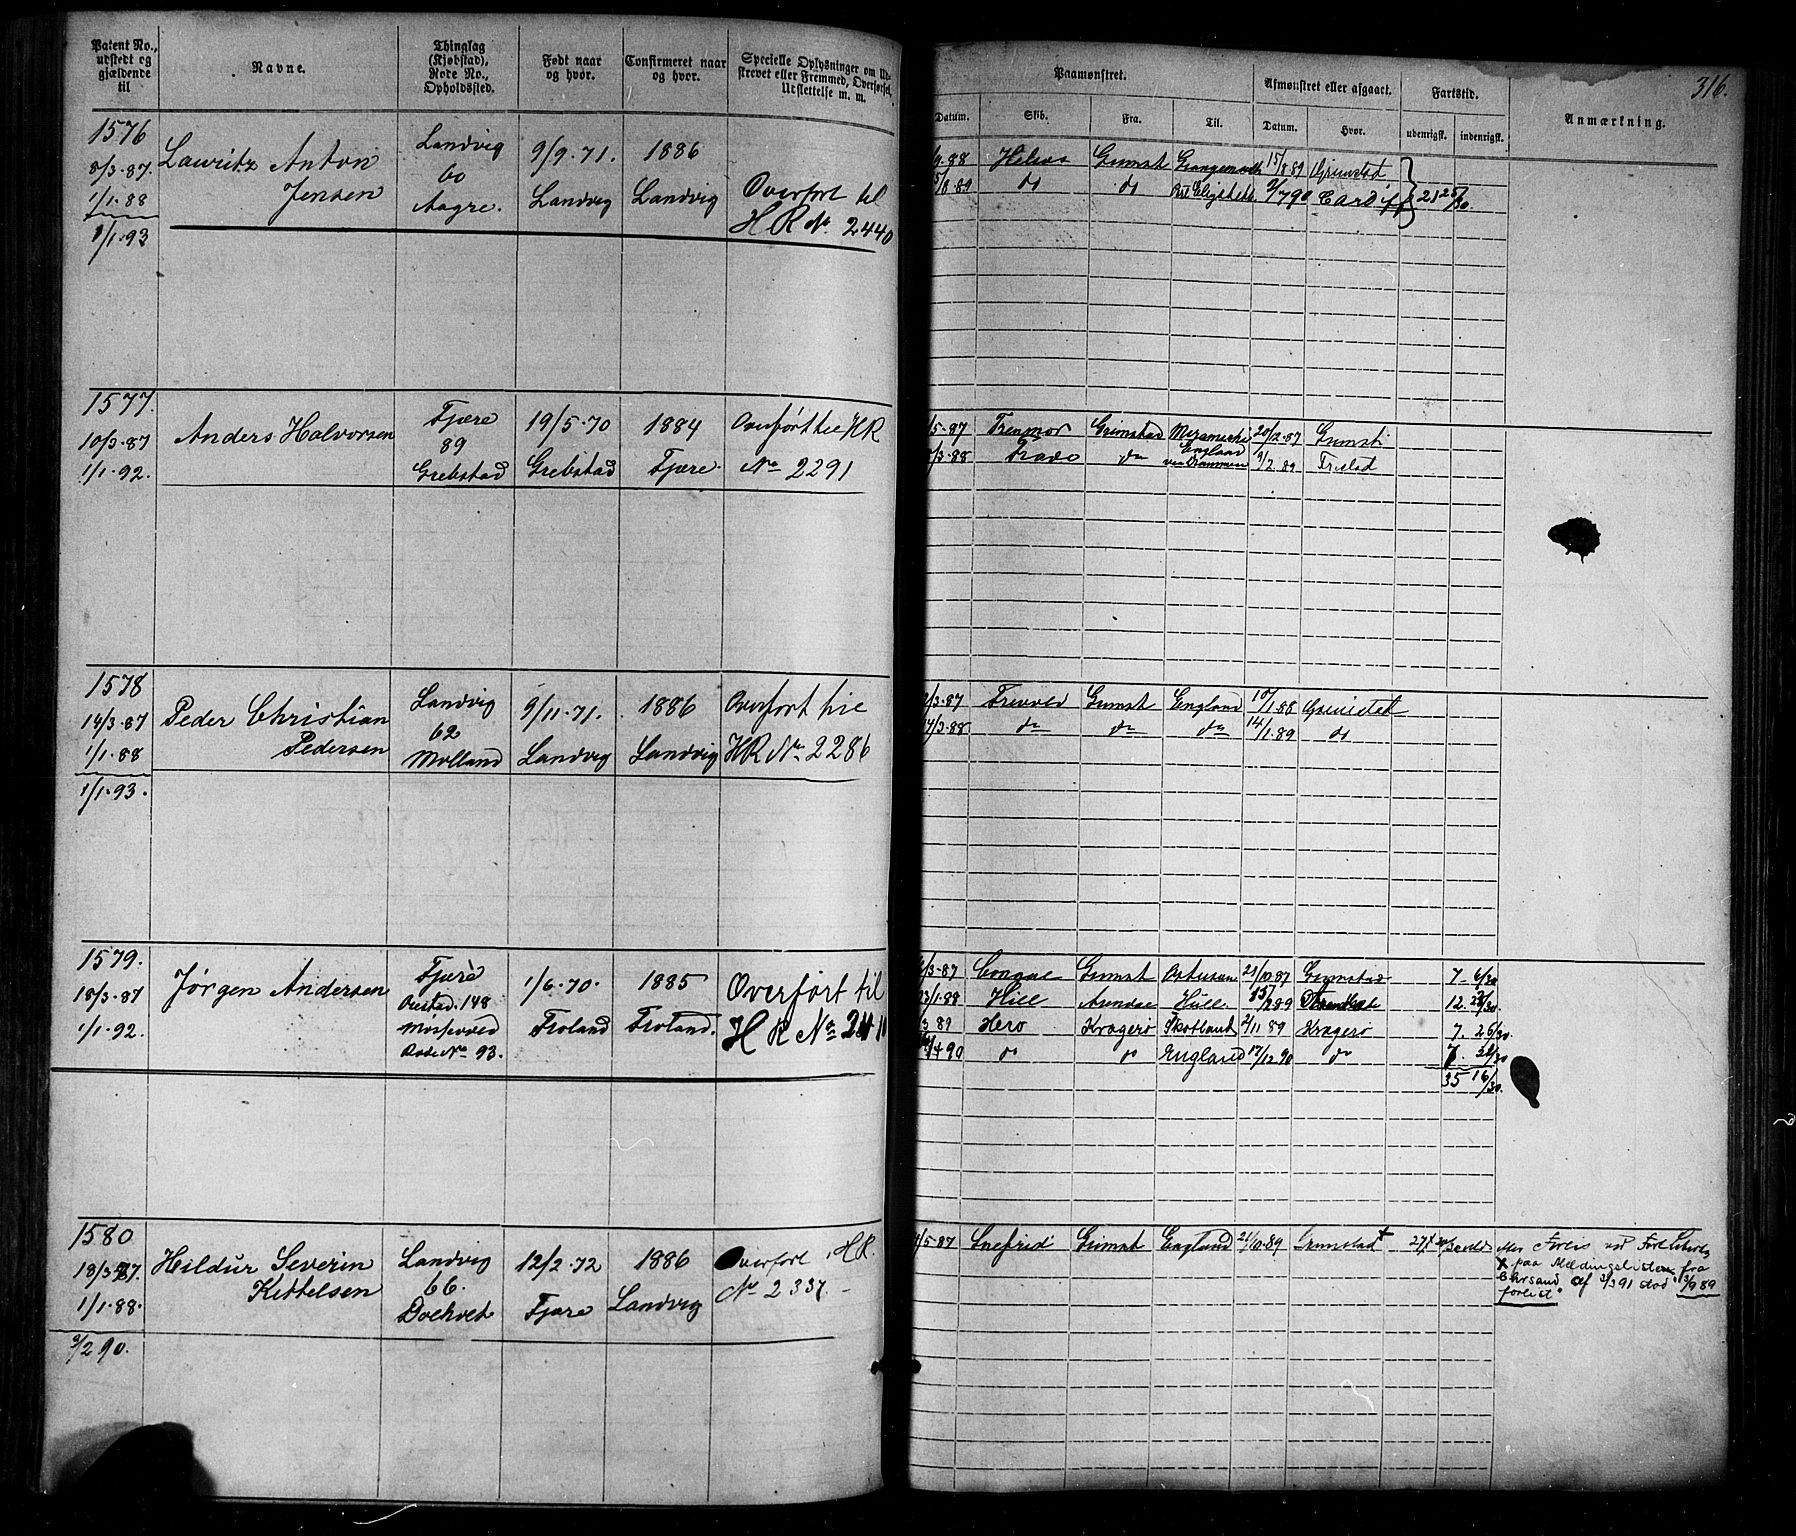 Patent No., udstedt og gjældende til
Navne.
Thinglag (Kjøbstad), Rode No., Opholdssted.
Født naar og hvor.
Confirmeret naar og hvor.
Specielle Oplysninger om Udskrevet eller Fremmed, Overførsel, Udslettelse m. m.
Paamønstret.
Afmønstret eller afgaaet.
Fartstid.
Anmærkning.
316.
Datum.
Skib.
Fra.
Til.
Datum.
Hvor.
udenrigsk.
indenrigsk.
1576
8/3.87.
1/1.88
1/1.93
Lauritz Anton
Jensen
Landvig
60
Aagre.
9/9.71.
Landvig
1886
Landvig
Overført til
HR No. 2440
9.88 Helios Grmst 15/8 89 Grimstad
8.89 do do 2/7 90 Cardiff 21 25/30.
1577.
10/3.87
1/1.92.
Anders Halvorsen
Fjære
89
Grebstad
19/5.70
Grebstad
1884
Fjære.
Overført til HR
No 2291
5-87 Trenmor Grimstad 20/12.87 Grmst
3.88 do England via Drammen 9/2.89
1578
14/3.87
1/1.88
1/1.93.
Peder Christian
Pedersen
Landvig
62
Molland
9/11.71.
Landvig
1886
Landvig
Overført til
HR No 2286
3.87 Grmst England 10/1.88 Grimstad
14/3.88 do do do 14/1.89 do
1579.
18/3.87
1/1.92.
Jørgen Andersen
Fjære
148
Rode No 93.
1/6.70.
Froland
1885
Froland.
Overført til
HR No 2411
3.87 Grmst 21/10.87 Grimstad 7. 6/30
1.88 Hill Arendal Hull 89 12. 30.
3 89 Hero Kragerø Skotland 2/11 89 Kragerø 7. 26/30.
4 90 do do England 17/12 90 do 7. 30
35 16/30.
1580
18/3.87.
1/1.88.
2/2 90.
Hildur Severin
Kittelsen
Landvig
66.
12/2.72
Fjære
1886
Landvig
Overført HR.
No 2337.
5.87 Snefrid Grimst England 21/10.89 Grimstad+ 27
Forlis
x paa Meldingslisten fra
Chrsand af 91 stod 89
forlist"